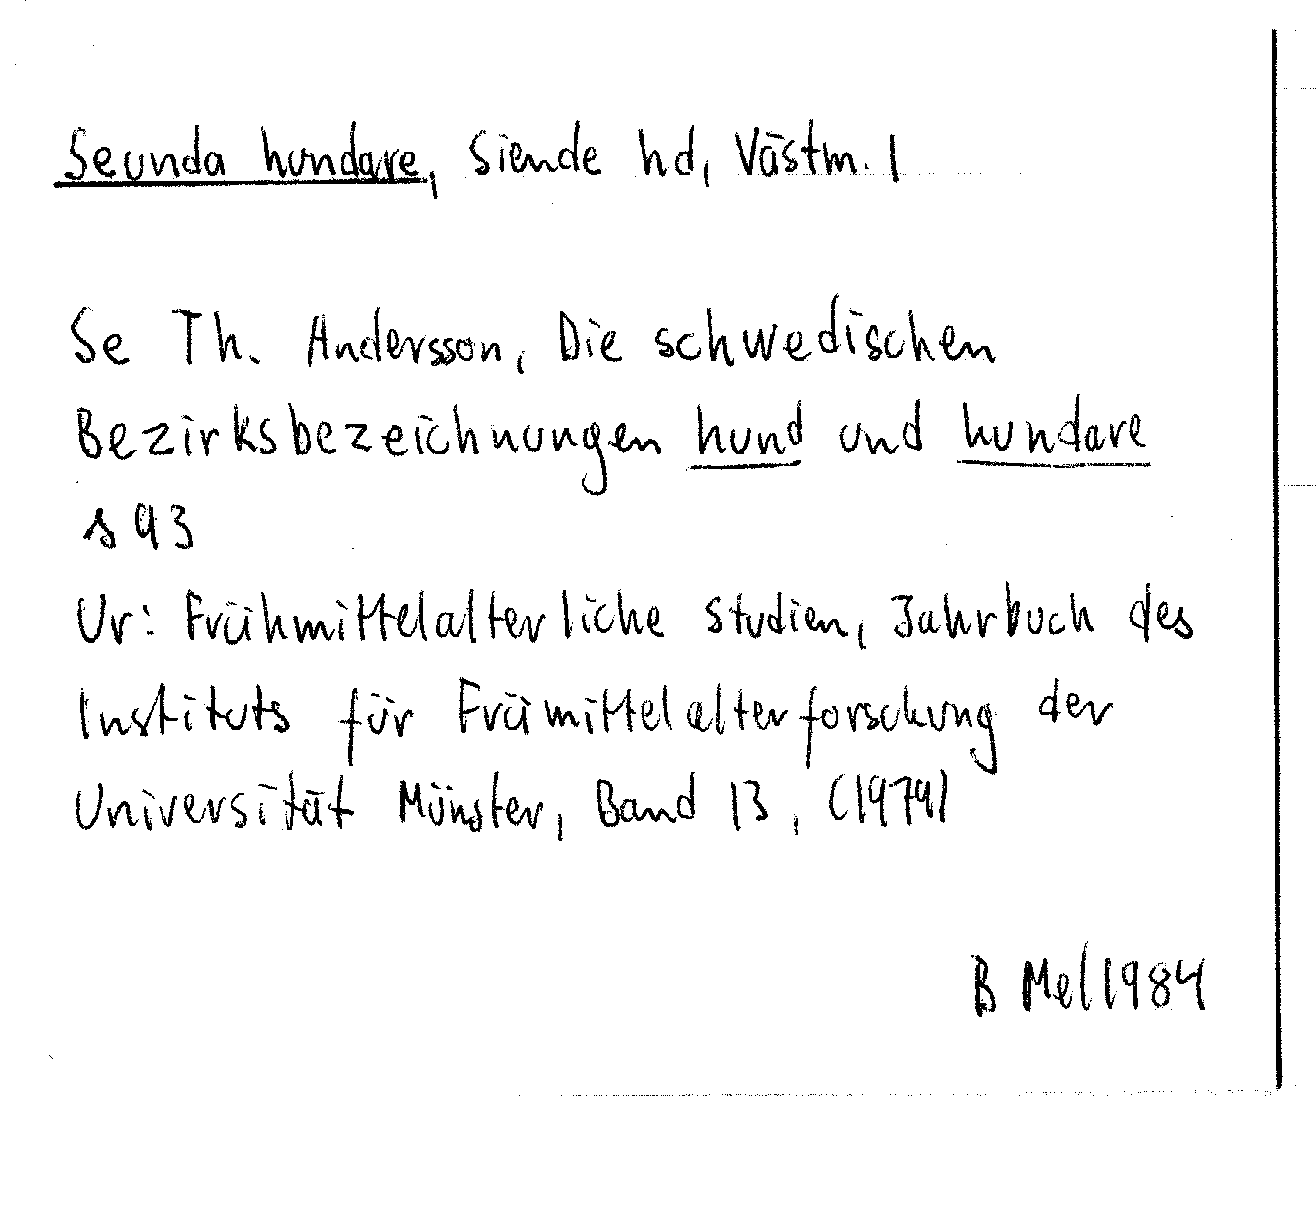 Seunda hundare, Siende hd, Västm. l
Se Th. Andersson, Die schwedischen
Bezirksbezeichnungen hund und hundare
s 93
Ur: Frühmittelalterliche Studien, Jahrbuch des
Instituts für Frümittelalterforschung der
Universität Münster, Band 13, (1979)
B Mel 1984